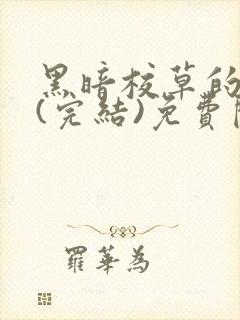 黑暗校草的
(完結)免費
羅華為